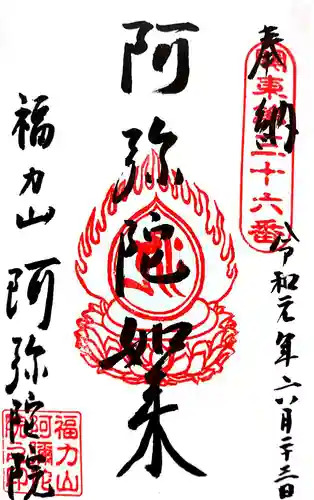 奉納
関東第二十六番
令和元年六月二十三日
阿弥陀如来
福力山阿弥陀院
福力山
阿彌陀
院之印